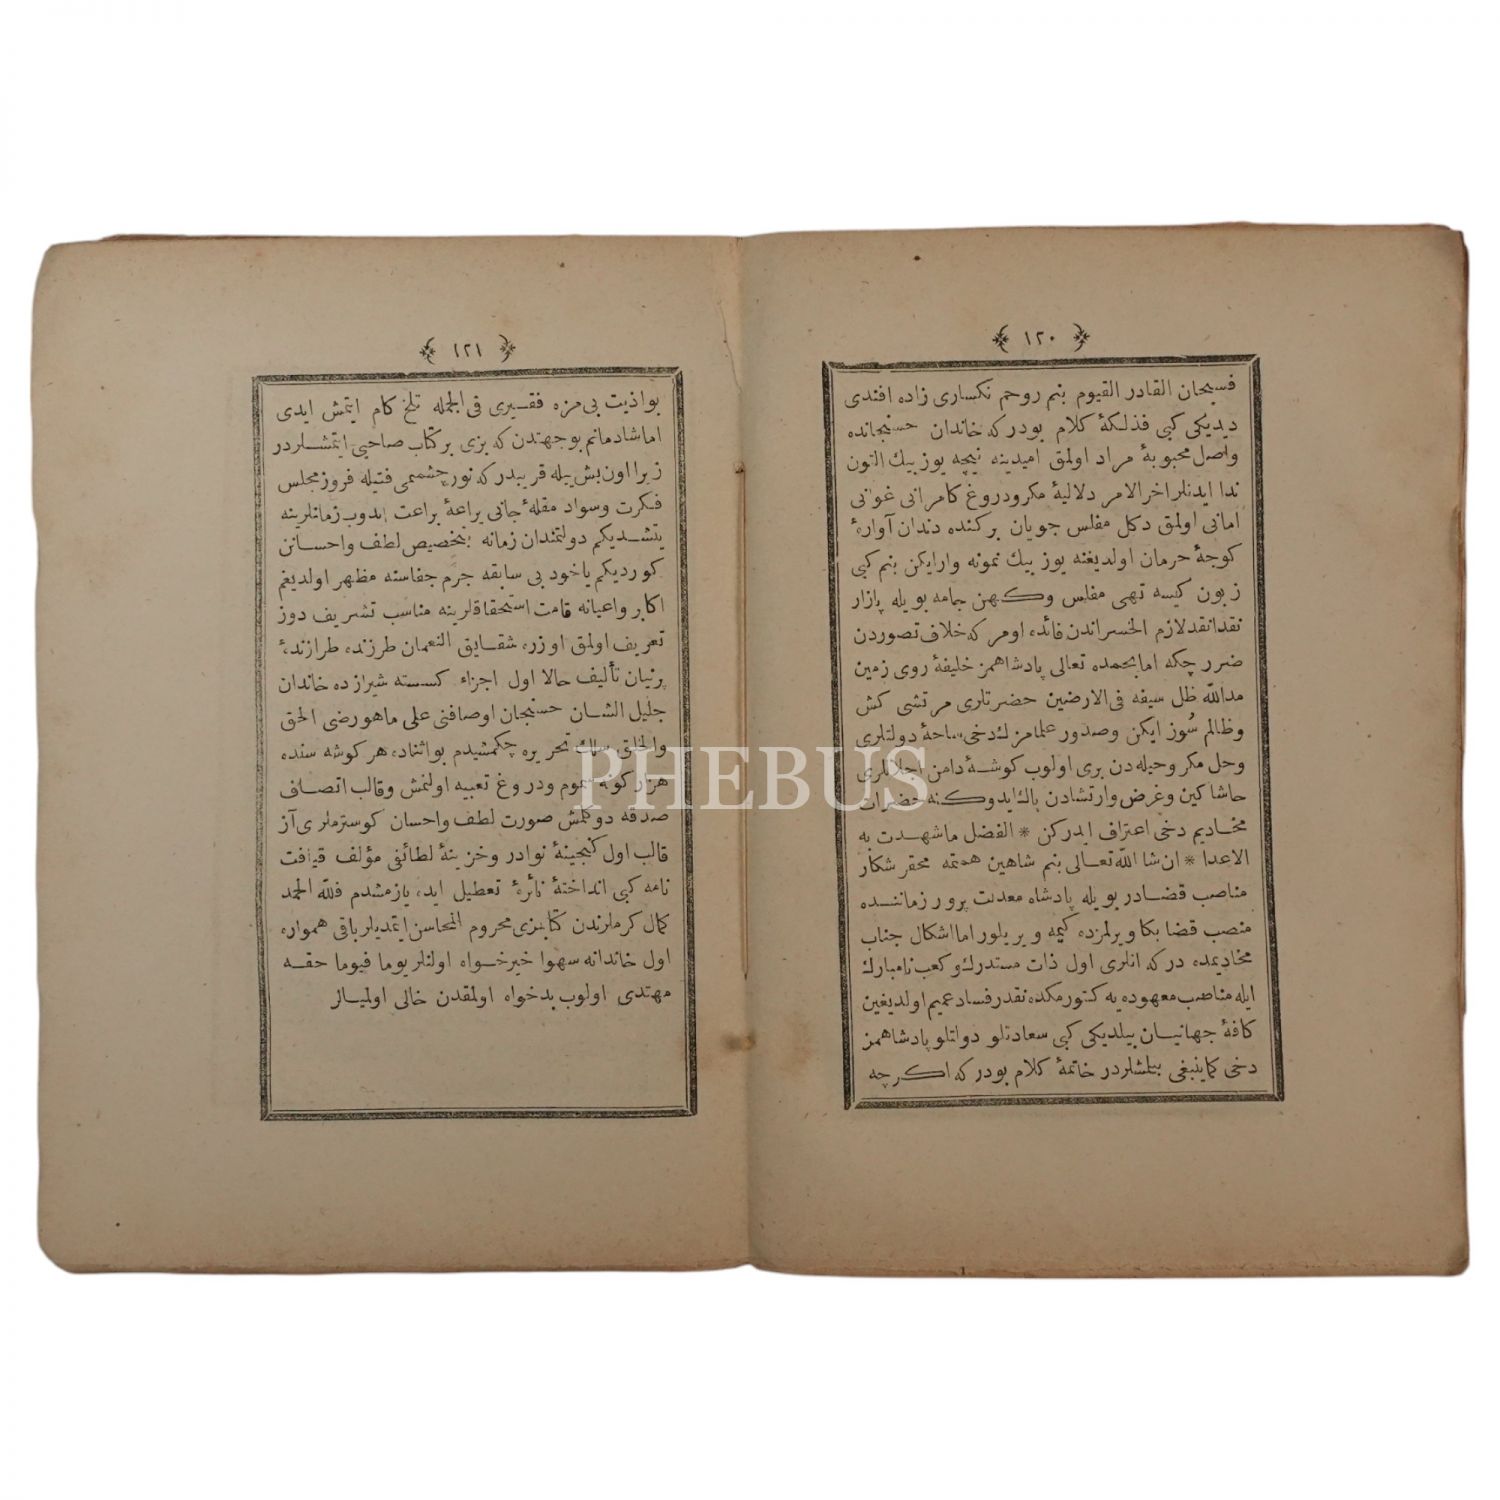 ١٢٠
فسبحان القادر القيوم بنم روحم نكسارى زاده افندى
ديديكى كبى فذلكهٔ كلام بودركه خاندان حسنجانده
واصل محبوبهٔ مراد اولمق اميدينه نيچه يوز بيك التون
ندا ايدنلر اخر الامر دلاليهٔ مكرودروغ كامرانى غوانى
امانى اولمق دكل مفلس جويان بركنده دندان آوارهٔ
كوچهٔ حرمان اولديغنه يوز بيك نمونه وارايكن بنم كبى
زبون كيسه تهى مفلس وكهن جامه بويله پازار
نقدانقدلازم الخسراندن فائده اومركه خلاف تصوردن
ضرر چكه امابحمده تعالى پادشاهمز خليفهٔ روى زمين
مدالله ظل سيفه فى الارضين حضرتلرى مرتشى كش
وظالم سُوز ايكن وصدور علمامزك دخى ساحهٔ دولتلرى
وحل مكر وحيله دن برى اولوب كوشهٔ دامن اجلاللرى
حاشاكين وغرض وارتشادن پاك ايدوكنه حضرات
مخاديم دخى اعتراف ايدركن * الفضل ماشهدت به
الاعدا * ان شا الله تعالى بنم شاهين همتمه محقر شكار
مناصب قضادر بويله پادشاه معدلت پرور زماننده
منصب قضا بكا ويرلمزده كيمه ويريلور امااشكال جناب
مخاديمده دركه انلرى اول ذات مستدرك وكعب نامبارك
ايله مناصب معهوده يه كتورمكده نقدر فساد عميم اولديغين
كافهٔ جهانيان بيلديكى كبى سعادتلو دولتلو پادشاهمز
دخى كماينبغى بيلشلردر خاتمهٔ كلام بودركه اكرچه
١٢١
بواذيت بى مزه فقيرى فى الجمله تلخ كام ايتمش ايدى
اماشادمانم بوجهتدن كه بزى بركتاب صاحبى ايتمشلردر
زيرا اون بش ييله قريبدركه نور چشممى فتيله فروز مجلس
فكرت وسواد مقلهٔ جانى يراعهٔ براعت ايدوب زمانلرينه
يتشديكم دولتمندان زمانه بتخصيص لطف واحسانن
كورديكم ياخود بى سابقه جرم جفاسنه مظهر اولديغم
اكابر واعيانه قامت استحقاقلرينه مناسب تشريف دوز
تعريف اولمق اوزره شقايق النعمان طرزنده طرازندهٔ
پرنيان تأليف حالا اول اجزاء كسسته شيرازه ده خاندان
جليل الشان حسنجان اوصافنى على ماهورضى الحق
والخلق سلك تحريره چكمشيدم بواثناده هر كوشه سنده
هزار كونه سموم ودروغ تعبيه اولنمش وقالب اتصاف
صدقه دوكلمش صورت لطف واحسان كوسترملرى آز
قالب اول كنجينهٔ نوادر وخزينهٔ لطائفى مؤلف قيافت
نامه كبى انداختهٔ نائرهٔ تعطيل ايده يازمشدم فلله الحمد
كمال كرملرندن كتابمزى محروم المحاسن ايتمديلر باقى همواره
اول خاندانه سهوا خيرخواه اولنلر يوما فيوما حقه
مهتدى اولوب بدخواه اولمقدن خالى اولميالر
PHEBUS